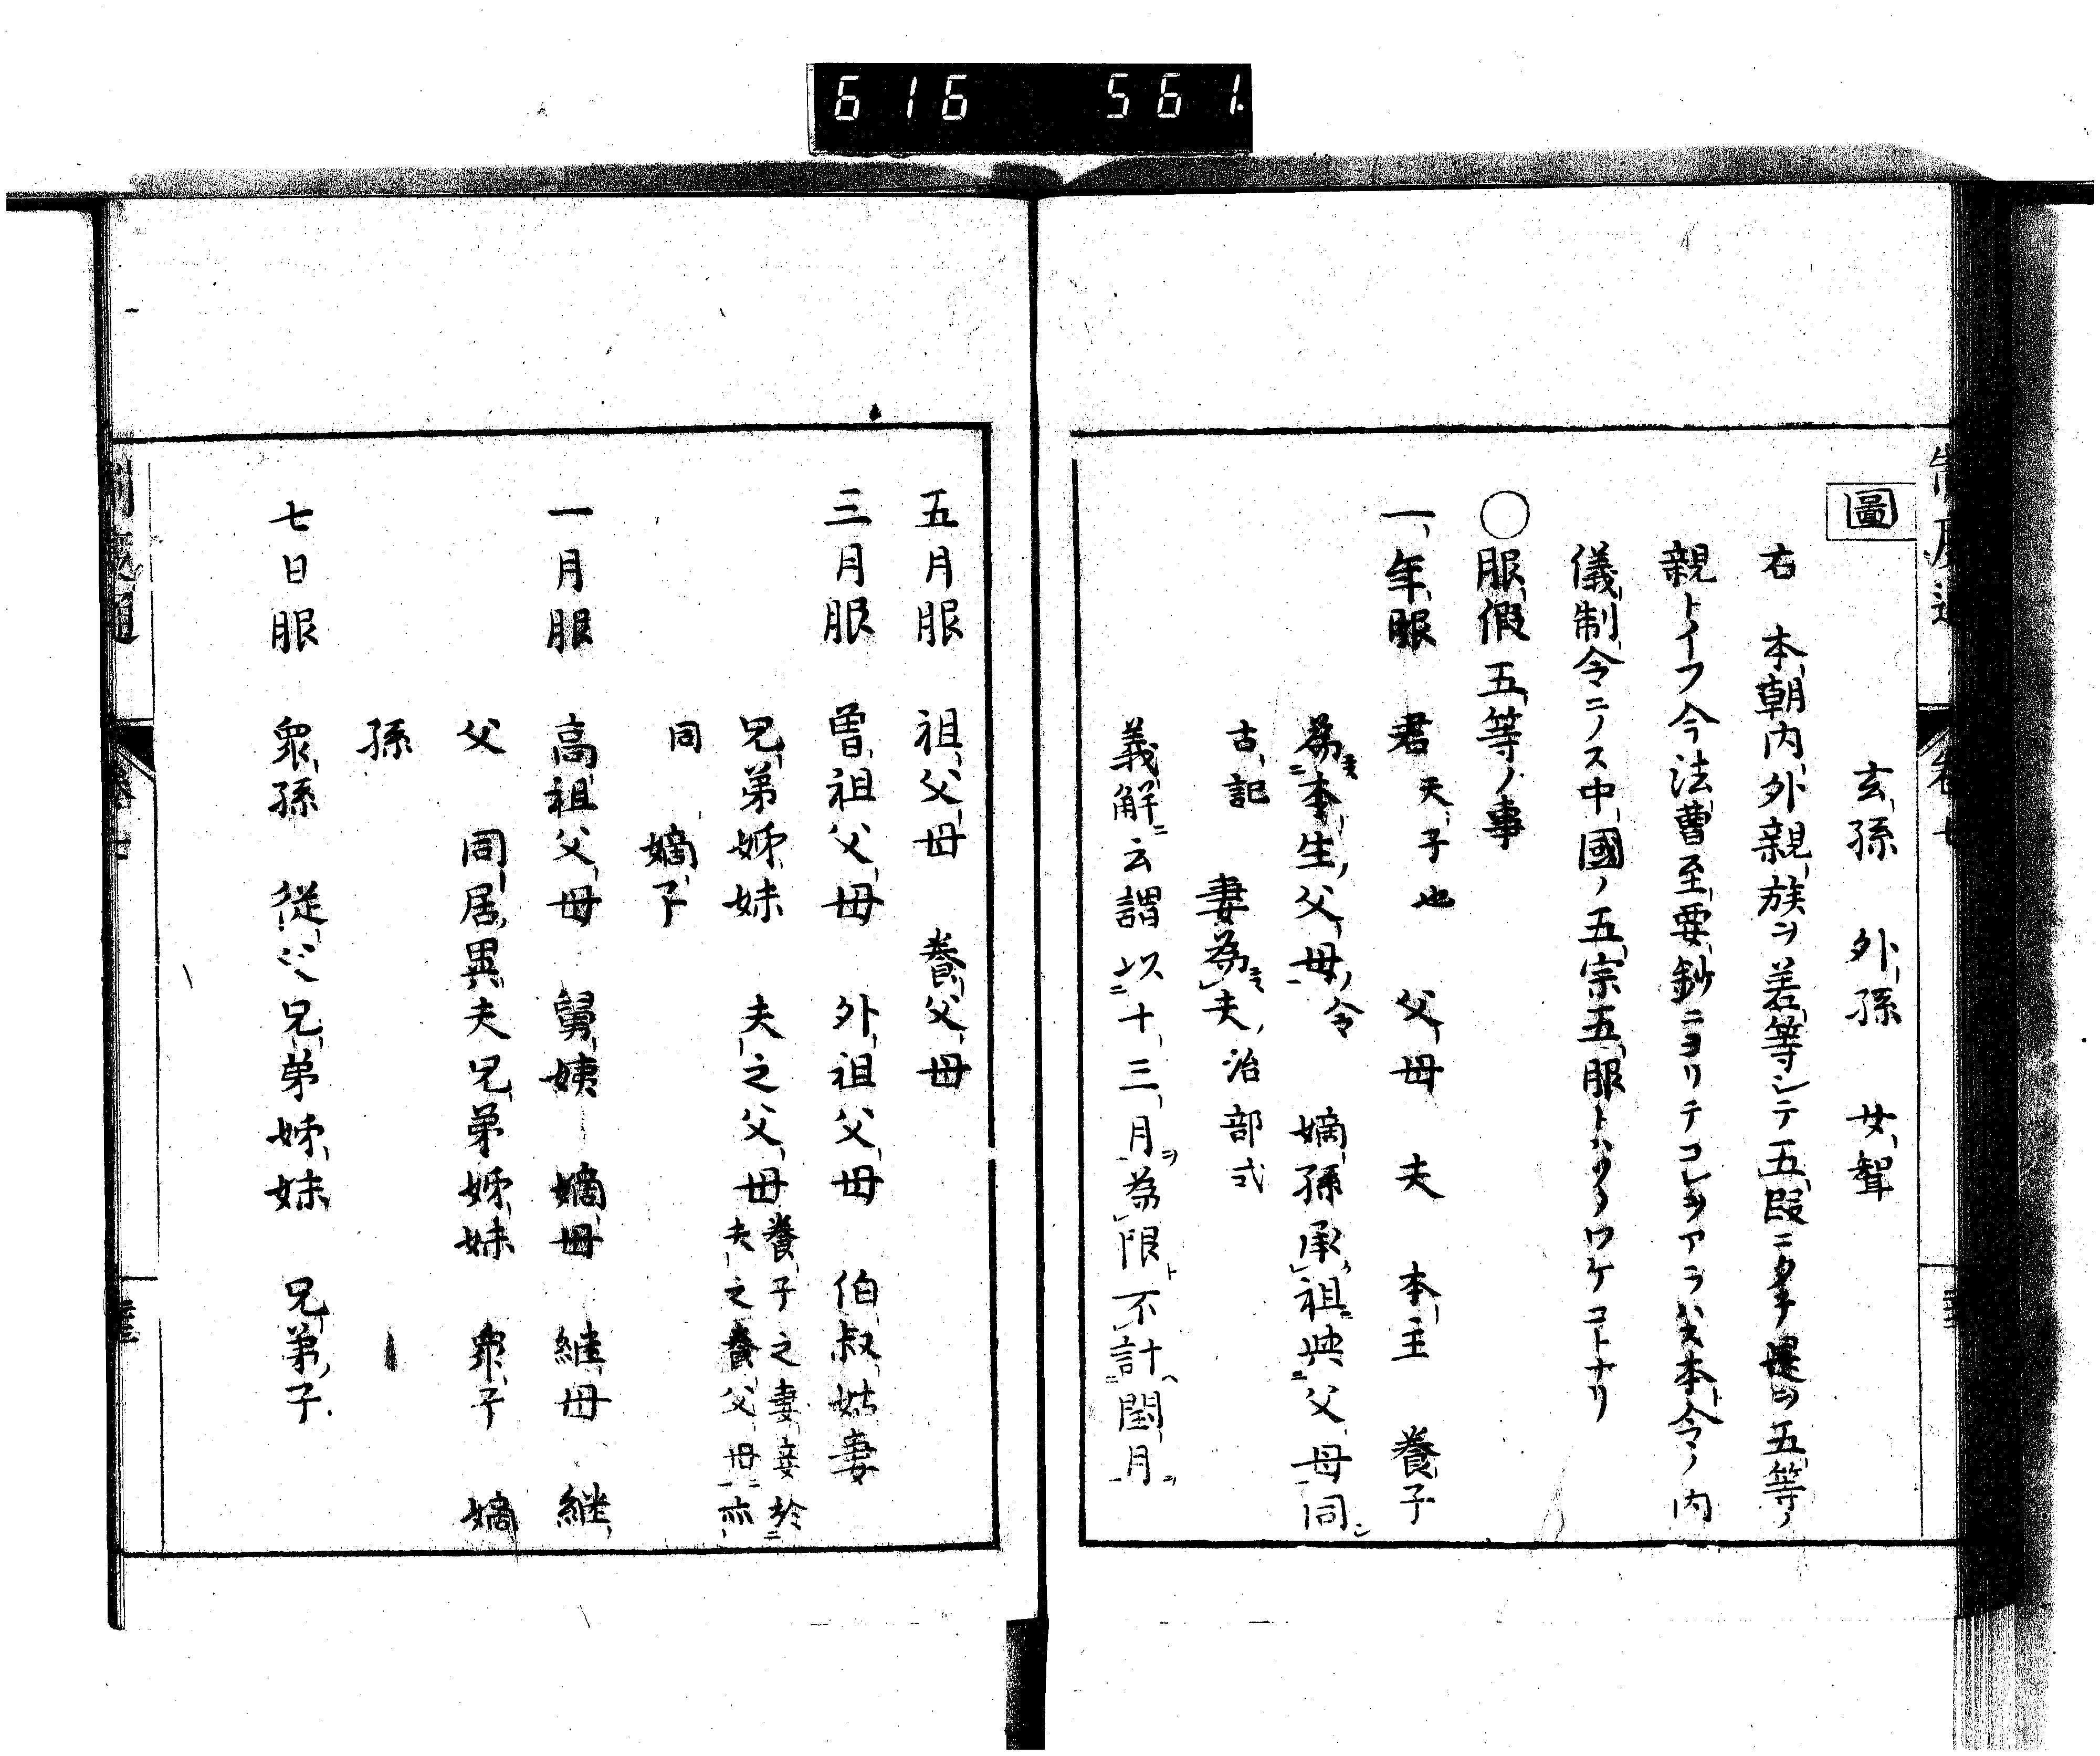 616 561.
圖
玄孫 外孫 女聟
右 本朝内外親族ヲ差等シテ五段ニタテ是ヲ五等ノ
親トイフ今法曹至要鈔ニヨリテコレヲアラハス本令ノ内
儀制令ニノス中國ノ五宗五服トハカクノワケコトナリ
○服假五等ノ事
一年服 君天子也 父母 夫 本主 養子
為本生父母令 嫡孫承祖與父母同シ
古記 妻為夫治部式
義解ニ云謂以十三月ヲ為限ト不計ヘ閏月ヲ
五月服 祖父母 養父母
三月服 曽祖父母 外祖父母 伯叔姑妻
兄弟姉妹 夫之父母養子之妻妾於
夫之養父母亦
同 嫡子
一月服 高祖父母 舅姨 嫡母 継母 継
父 同居異夫兄弟姉妹 衆子 嫡
孫
七日服 衆孫 従父兄弟姉妹 兄弟子